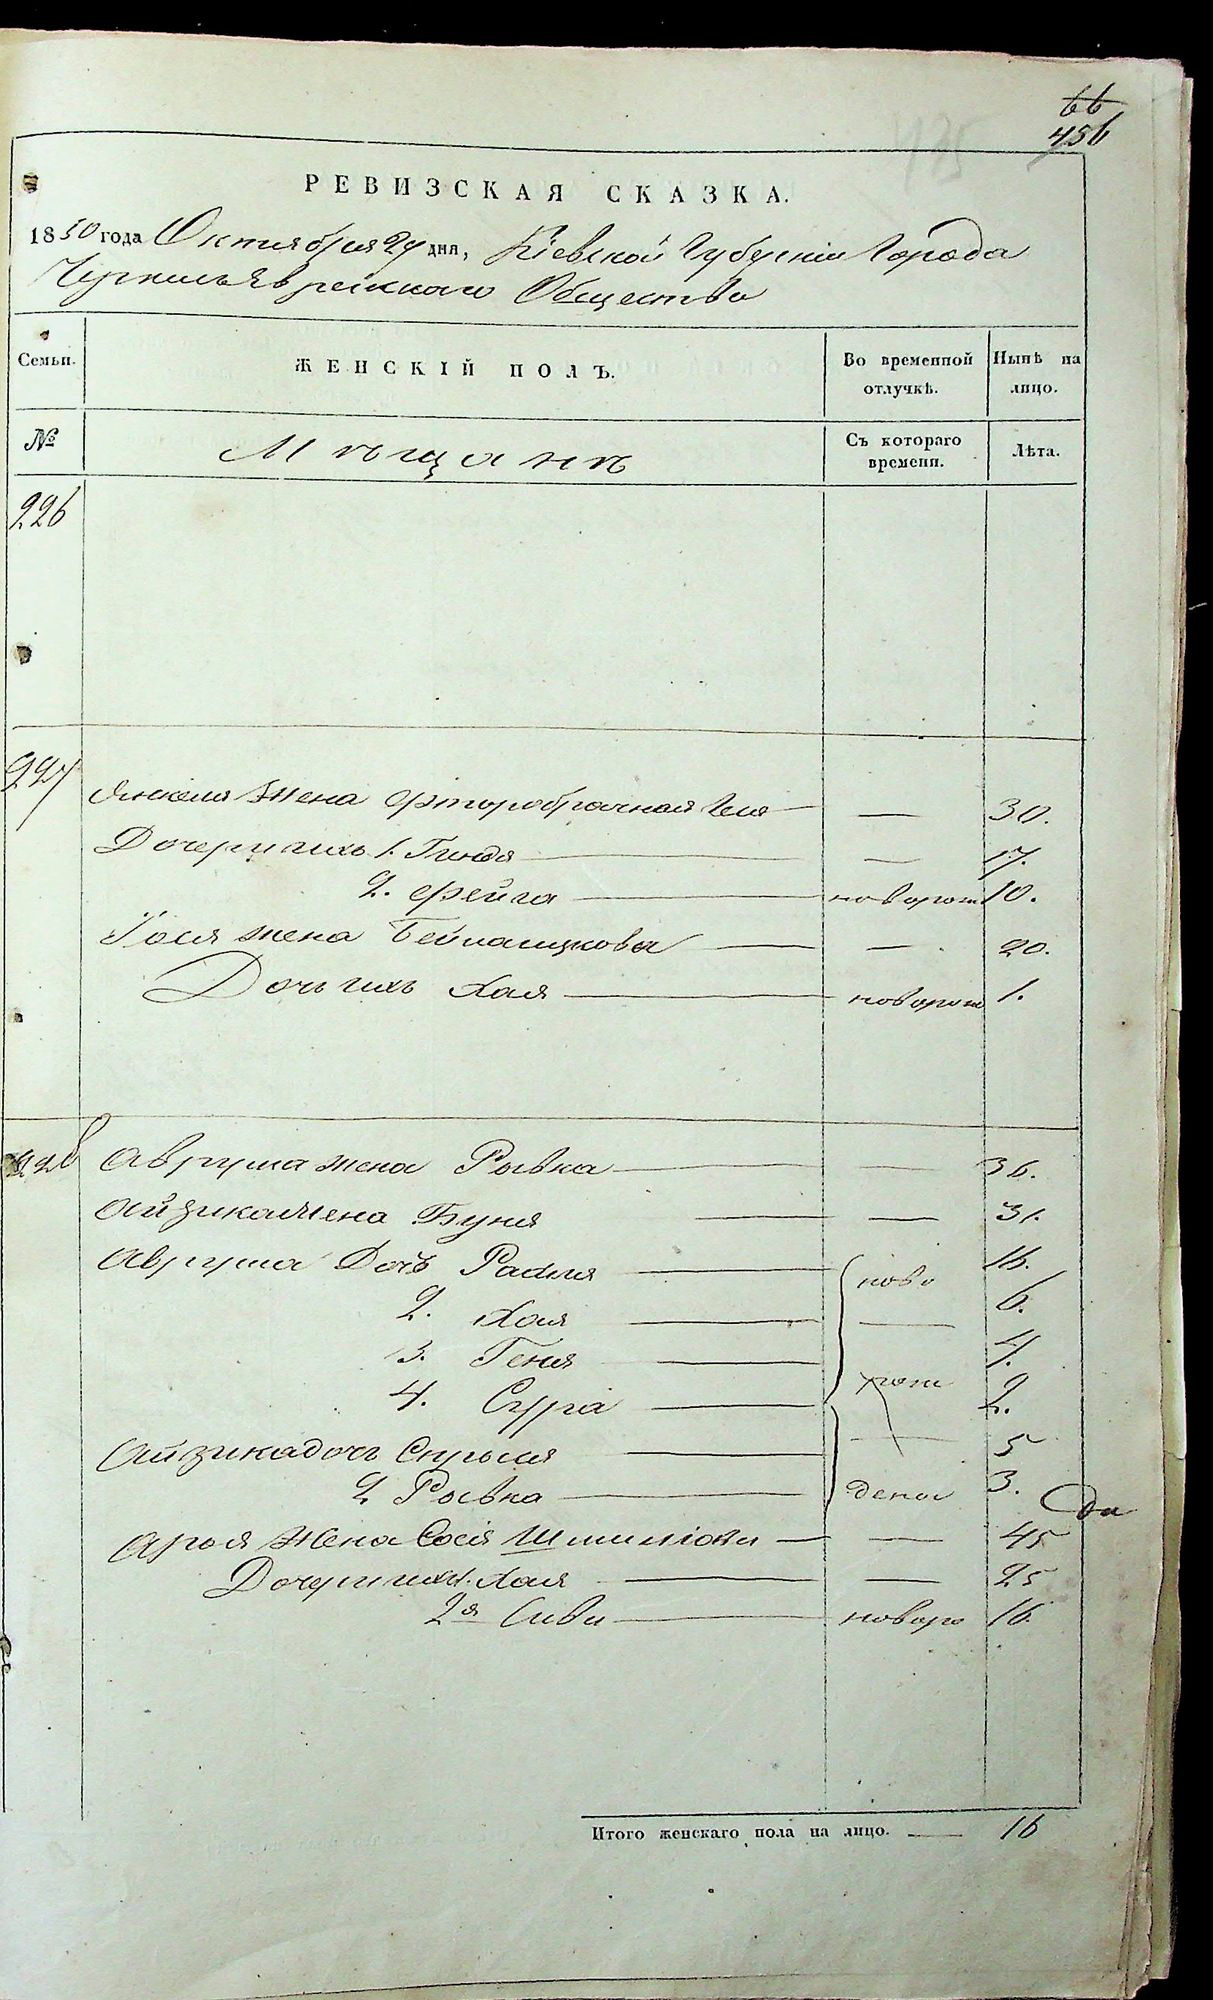 66
456
РЕВИЗСКАЯ СКАЗКА.
1850 года Октября 27 дня, Кіевской Губерніи Города
Еврейскаго Общества
Семьи. ЖЕНСКІЙ ПОЛЪ. Во временной отлучкѣ. Нынѣ на лицо.
№ Мѣщанѣ Съ котораго времени. Лѣта.
226
227
Янкеля жена фторобрачная — — 30.
Дочери ихъ 1. Гинда — — 17.
2. Фейга — новорож 10.
жена — — 20.
Дочь ихъ Хая — новорож 1.
228 Аврума жена Ривка — — 36.
Айзика жена Буня — — 31.
Аврума Дочь Рахля — ново 16.
2. Хая — — 6.
3. Геня — 4.
4. Сура — рож 2.
Айзика дочь — — 5
2. Ривка — дена 3.
Арья жена Сося — — 45
Дочери ихъ 1. Хая — — 25
2я Сиви — новоро 16.
Итого женскаго пола на лицо. — 16